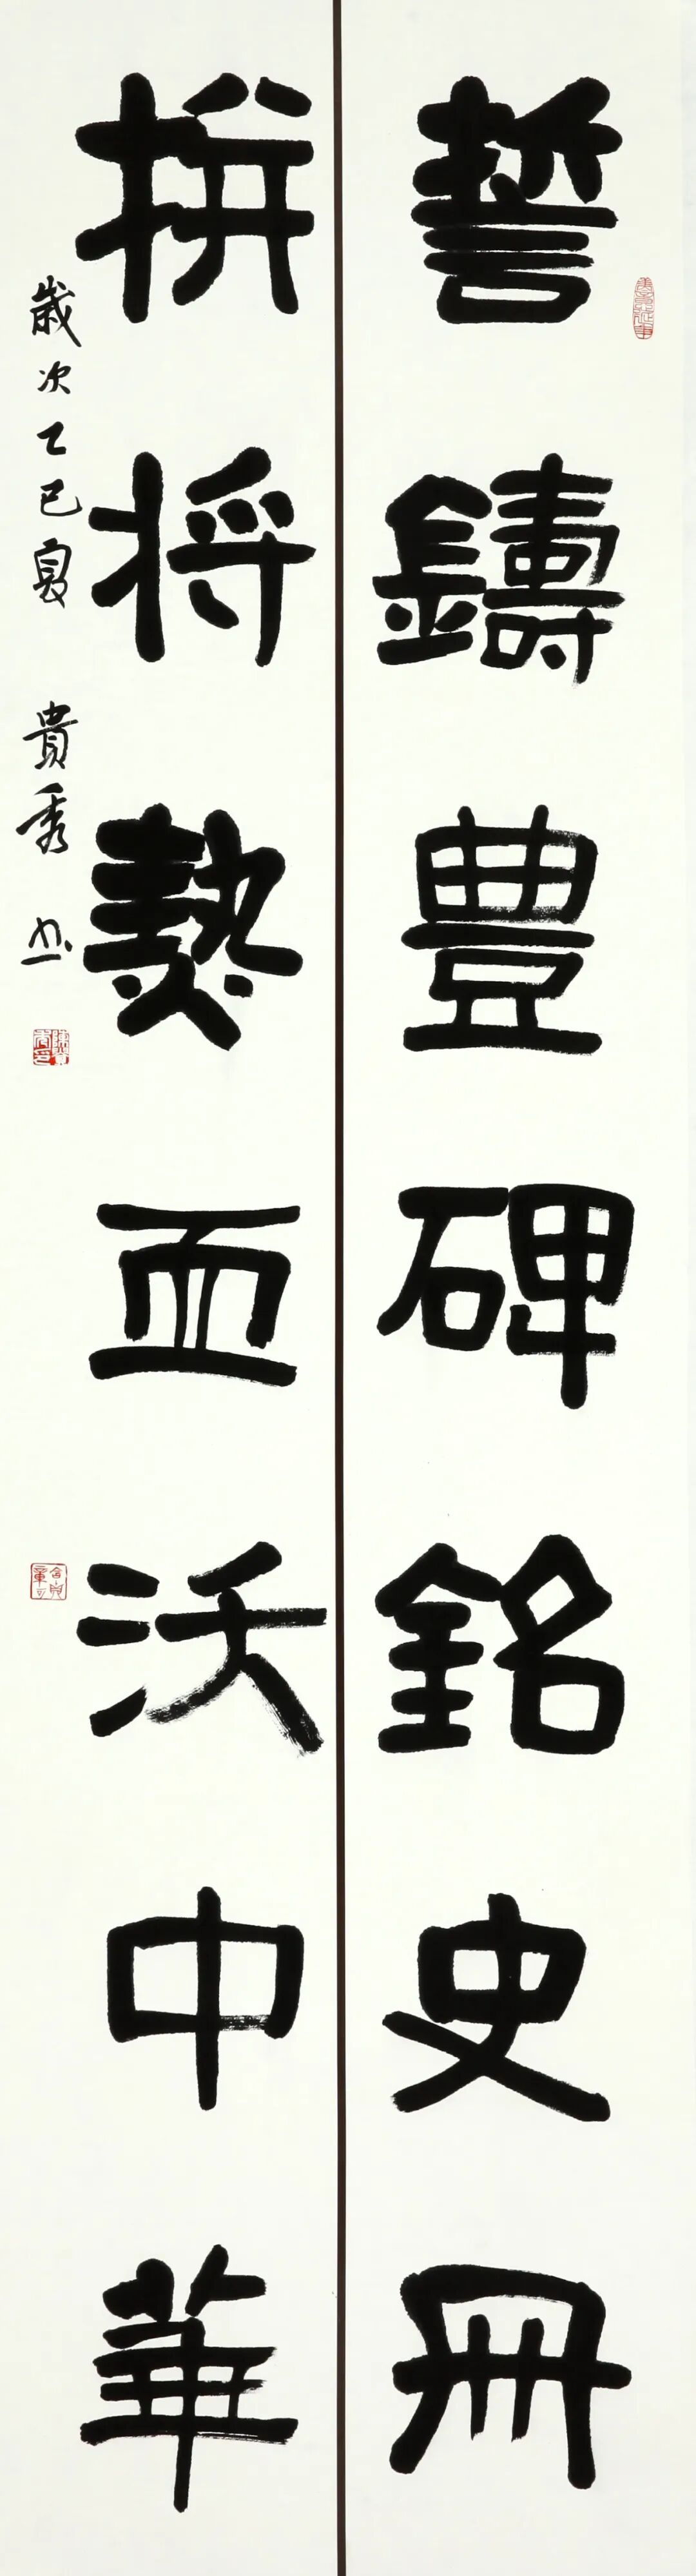 誓鑄豊碑銘史冊
拚将熱血沃中華
歲次乙巳夏 貴秀书